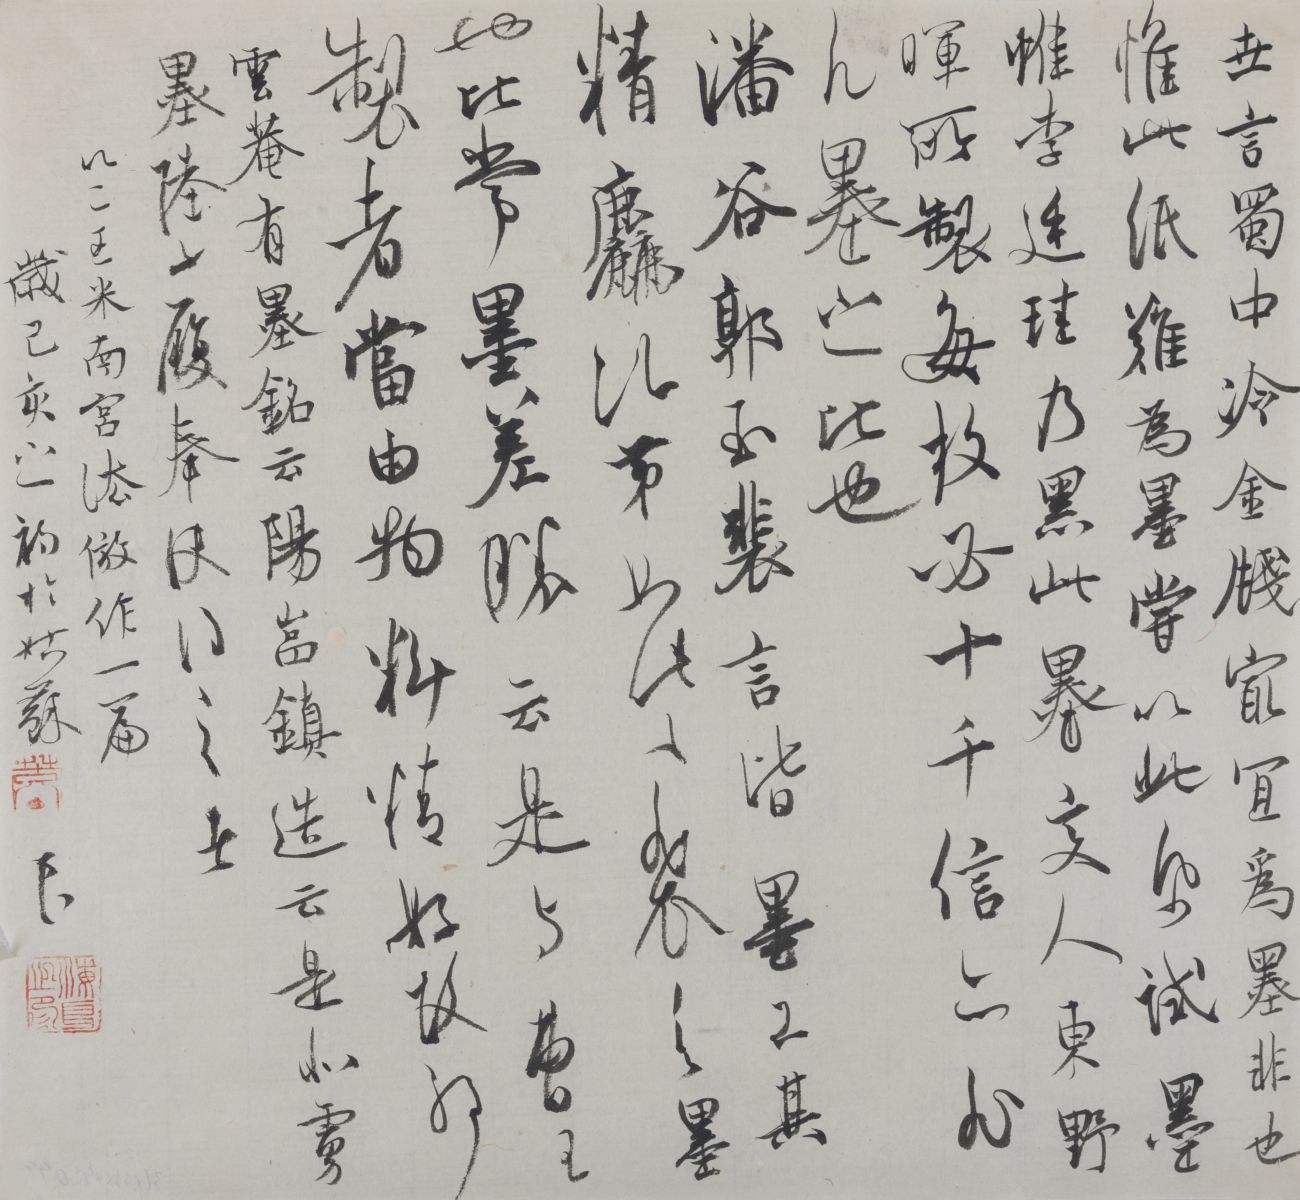 世言蜀中冷金牋最宜爲墨非也
惟此紙難為墨嘗以此紙試墨
惟李廷珪乃黑此墨文人東野
暉所製每枚必十千信亦非
凡墨之比也
潘谷郭玉裴言皆墨工其
精麤次第如此此裴之墨
也比常墨差勝云是与曹王
製者當由物料精好故耶
雲菴有墨銘云陽嵓鎮造云是北虜
墨陸子履奉使得之者
以二王米南宮法倣作一篇
歲己亥之初於姑蘇